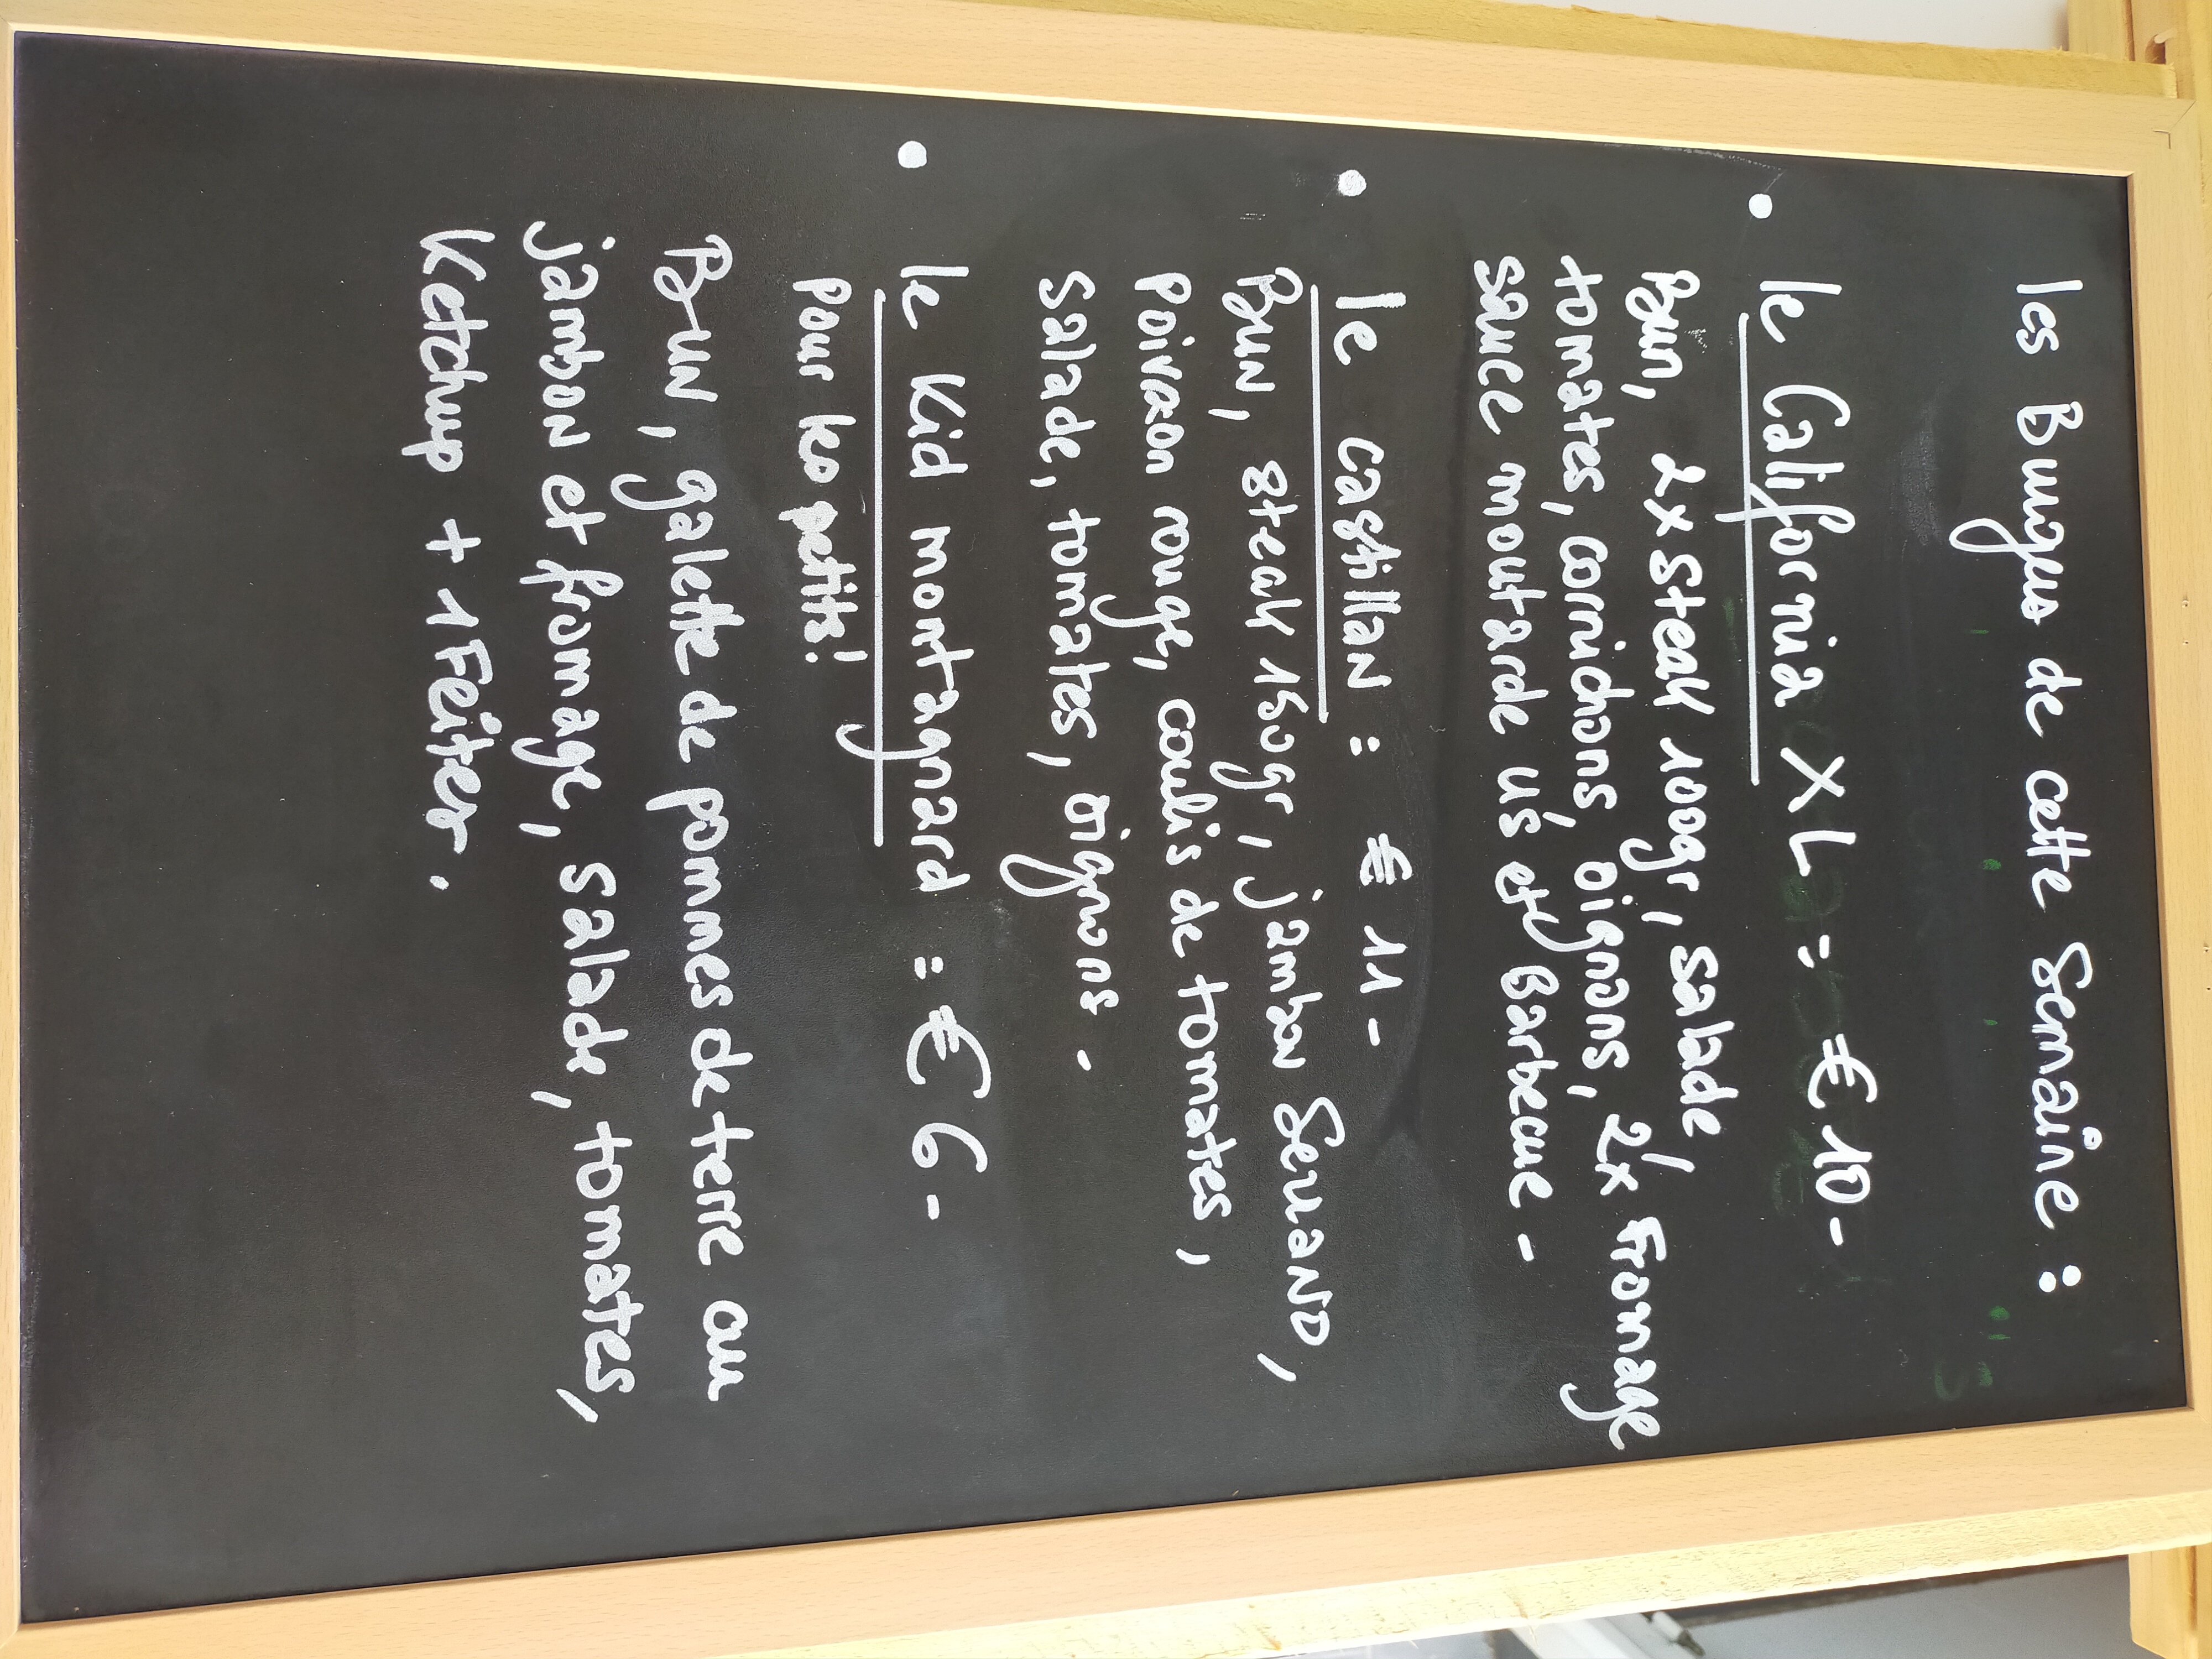 les Burgers de cette Semaine :
• le California XL : € 10-
Bun, 2x Steak 100gr, salade
tomates, cornichons, oignons, 2x Fromage
sauce moutarde us et Barbecue -
• le Castillan : € 11 -
Bun, steak 150gr, jambon Serrano,
poivron rouge, coulis de tomates,
salade, tomates, oignons -
• le Kid montagnard : € 6 -
pour les petits!
Bun, galette de pommes de terre au
jambon et fromage, salade, tomates,
Ketchup + 1 Frites.